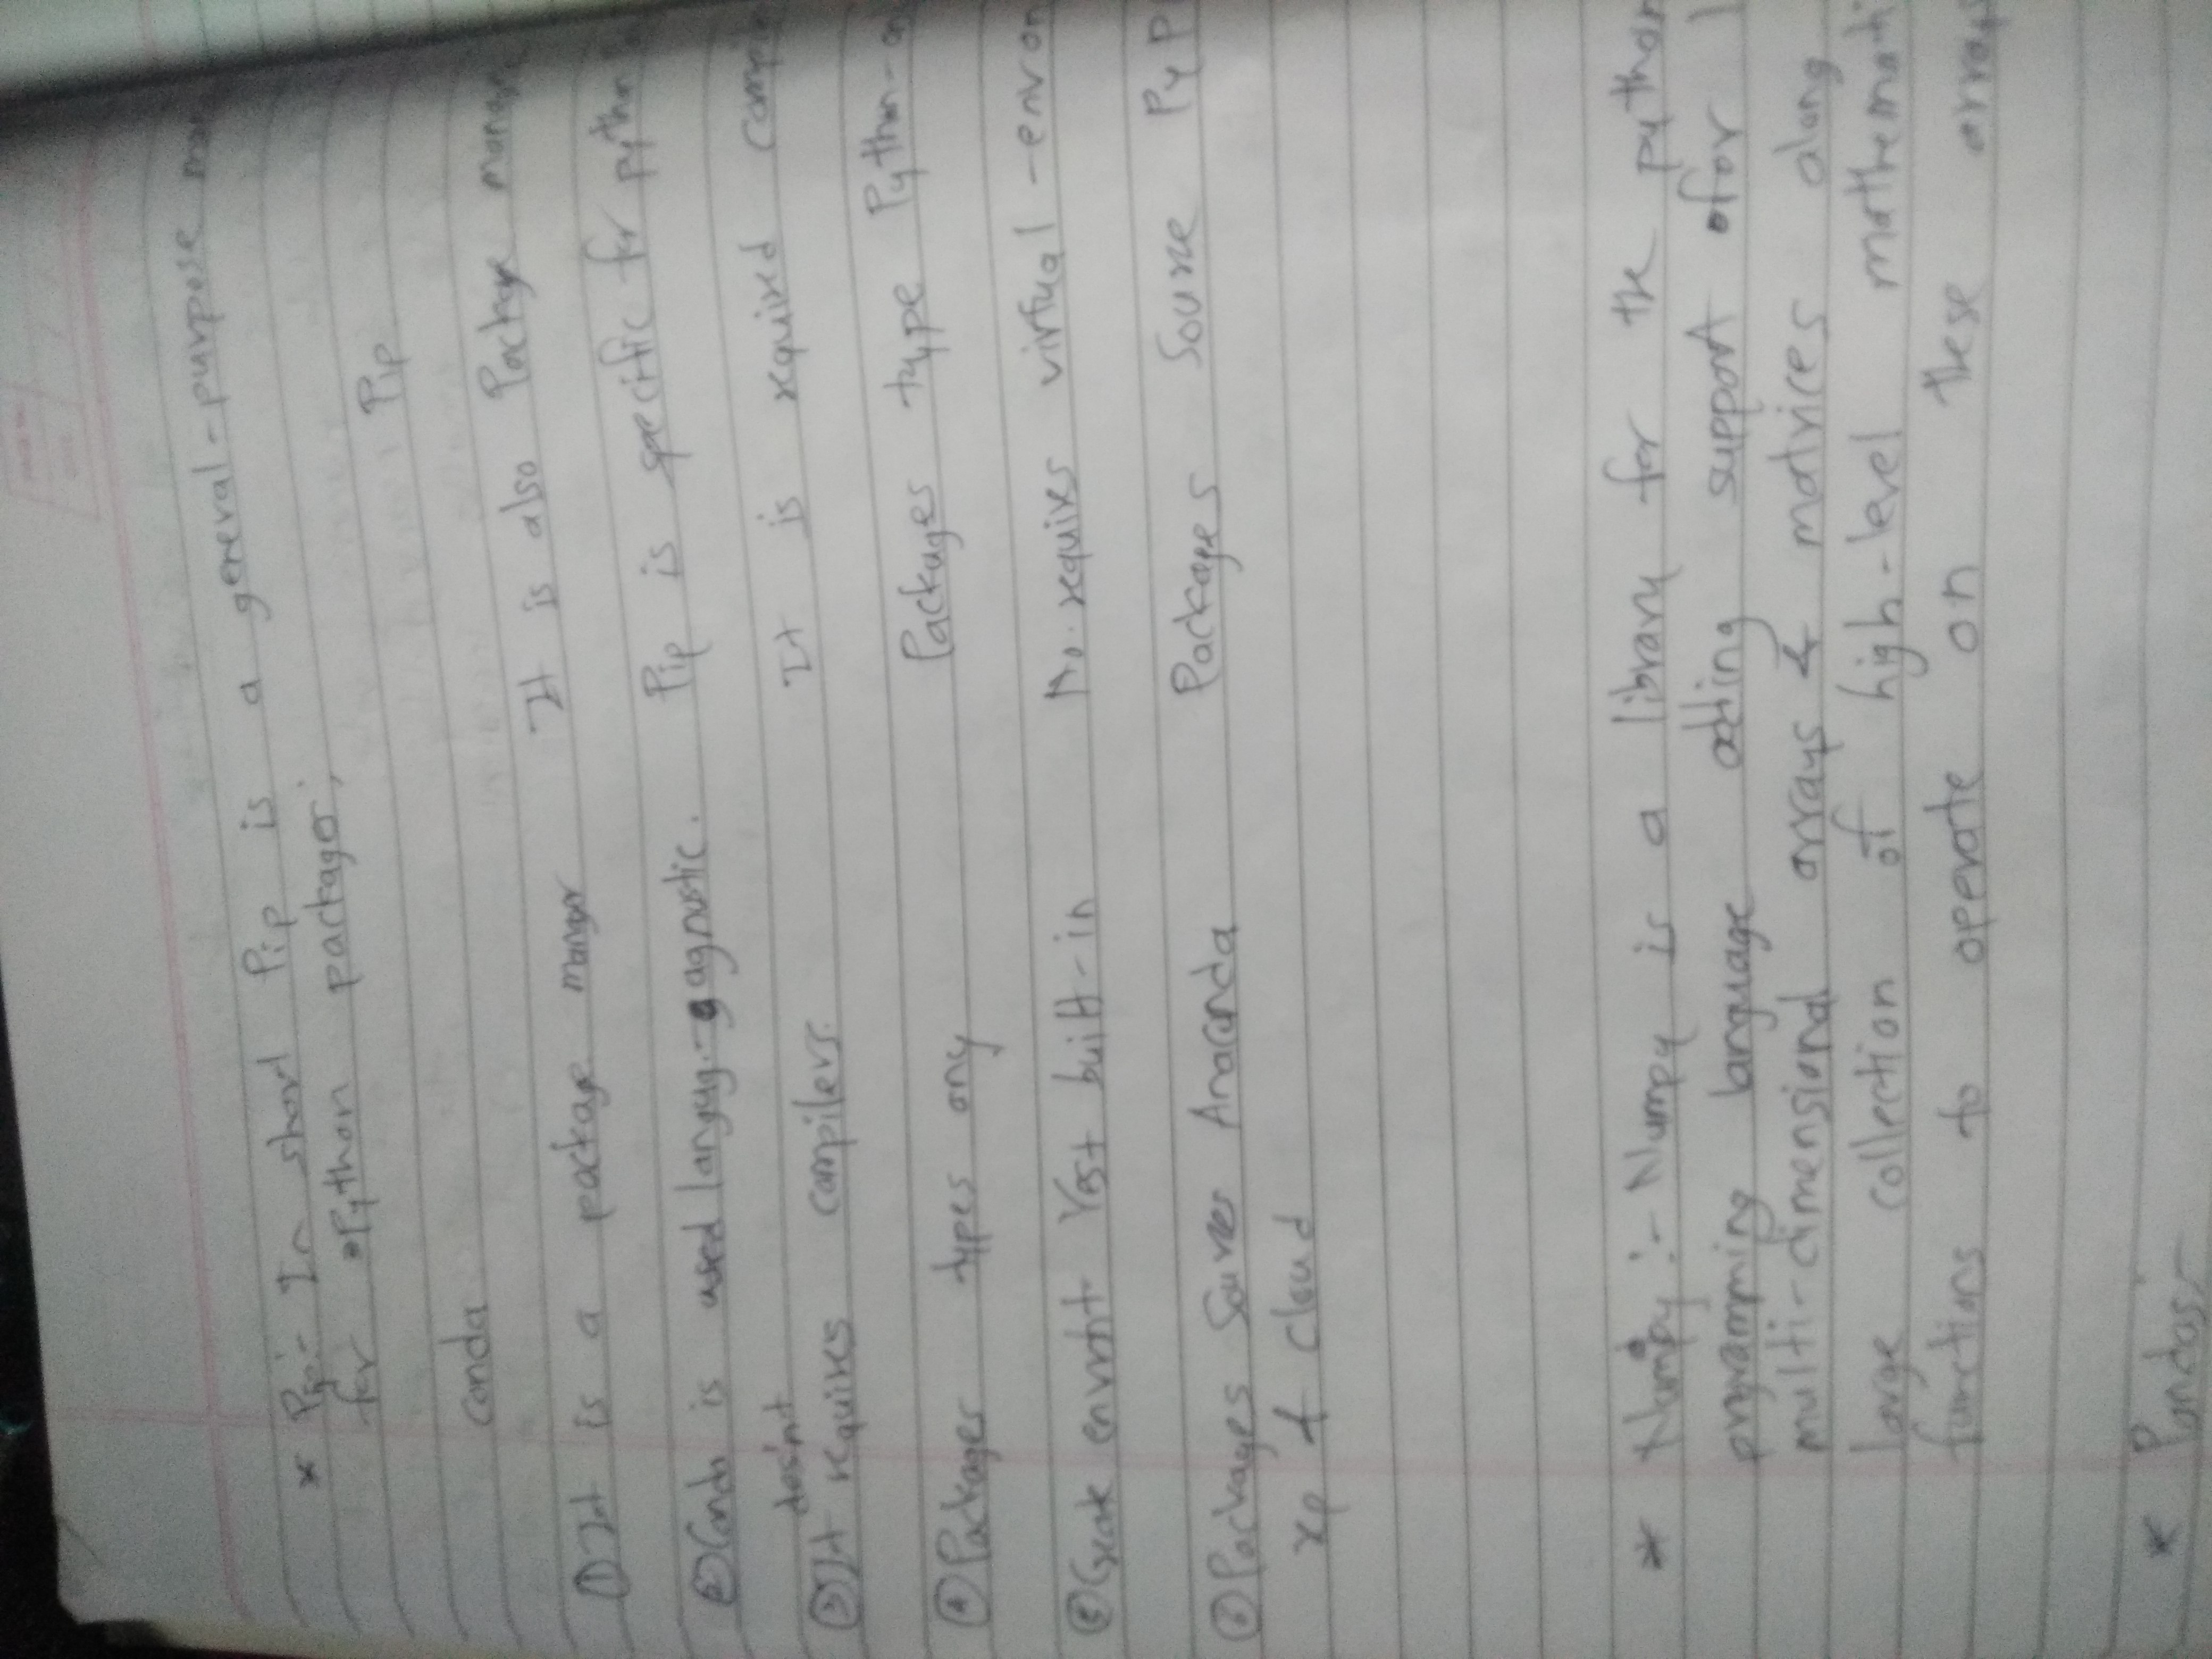 * Pip:- In short Pip is a general-purpose
for Python packages;
conda Pip
① It is a package manager It is also Package
② Conda is used languag-agnostic. Pip is specific for python
dosint
③ It requires compilers. It is required
④ Packages types any Packages type Python
⑤ Yest built-in No. requires virtual
⑥ Packages Anaconda Packages
& cloud
* Numpy:- Numpy is a library for the python
programming language adding support
multi-dimensional arrays & matrices along
large collection of high-level
functions to operate on these
* Pandas:-